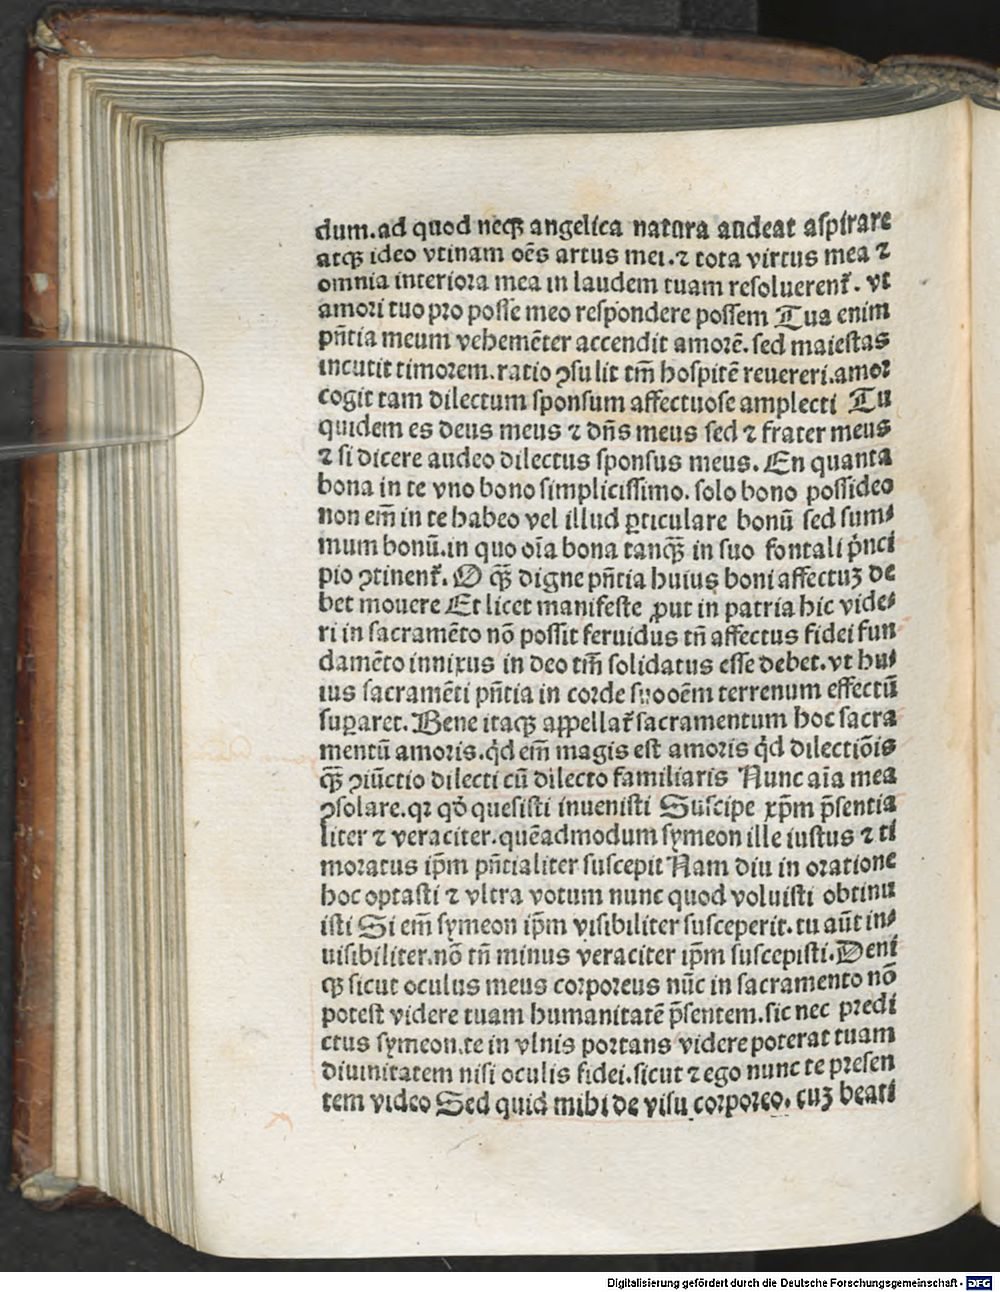 dum.ad quod neqꝫ angelica natura audeat aspirare
atqꝫ ideo vtinam oēs artus mei.⁊ tota virtus mea ⁊
omnia interiora mea in laudem tuam resoluerent᷑. vt
amori tuo pro posse meo respondere possem Tua enim
pn̄tia meum vehemēter accendit amorē.sed maiestas
incutit timorem.ratio ꝯsulit tm̄ hospitē reuereri.amor
cogit tam dilectum sponsum affectuose amplecti Tu
quidem es deus meus ⁊ dn̄s meus sed ⁊ frater meus
⁊ si dicere audeo dilectus sponsus meus. En quanta
bona in te vno bono simplicissimo. solo bono possideo
non em̄ in te habeo vel illud ꝑticulare bonū sed sum⸗
mum bonū.in quo oīa bona tanqꝫ̄ in suo fontali p̄nci
pio ꝯtinent᷑. O qꝫ̄ digne pn̄tia huius boni affectuꝫ de
bet mouere Et licet manifeste ꝓut in patria hic vide⸗
ri in sacramēto nō possit feruidus tn̄ affectus fidei fun
damēto innixus in deo tm̄ solidatus esse debet.vt hu⸗
ius sacramēti pn̄tia in corde suo oēm terrenum effectū
suꝑaret. Bene itaqꝫ appellat᷑ sacramentum hoc sacra
mentū amoris.qd̓ em̄ magis est amoris qd̓ dilectiōis
qꝫ̄ ꝯiūctio dilecti cū dilecto familiaris Nunc aīa mea
ꝯsolare.qꝛ qō quesisti inuenisti Suscipe xp̄m p̄sentia
liter ⁊ veraciter.quēadmodum symeon ille iustus ⁊ ti
moratus ip̄m pn̄tialiter suscepit Nam diu in oratione
hoc optasti ⁊ vltra votum nunc quod voluisti obtinu
isti Si em̄ symeon ip̄m visibiliter susceperit. tu aūt in⸗
uisibiliter.nō tn̄ minus veraciter ip̄m suscepisti. Deni
qꝫ sicut oculus meus corporeus nūc in sacramento nō
potest videre tuam humanitatē p̄sentem.sic nec predi
ctus symeon.te in vlnis portans videre poterat tuam
diuinitatem nisi oculis fidei.sicut ⁊ ego nunc te presen
tem video Sed quid mihi de visu corporeo. cuꝫ beati
Digitalisierung gefördert durch die Deutsche Forschungsgemeinschaft - DFG